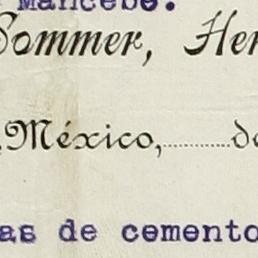 Mancebo.
Sommer, Her
México,............de
as de cemento